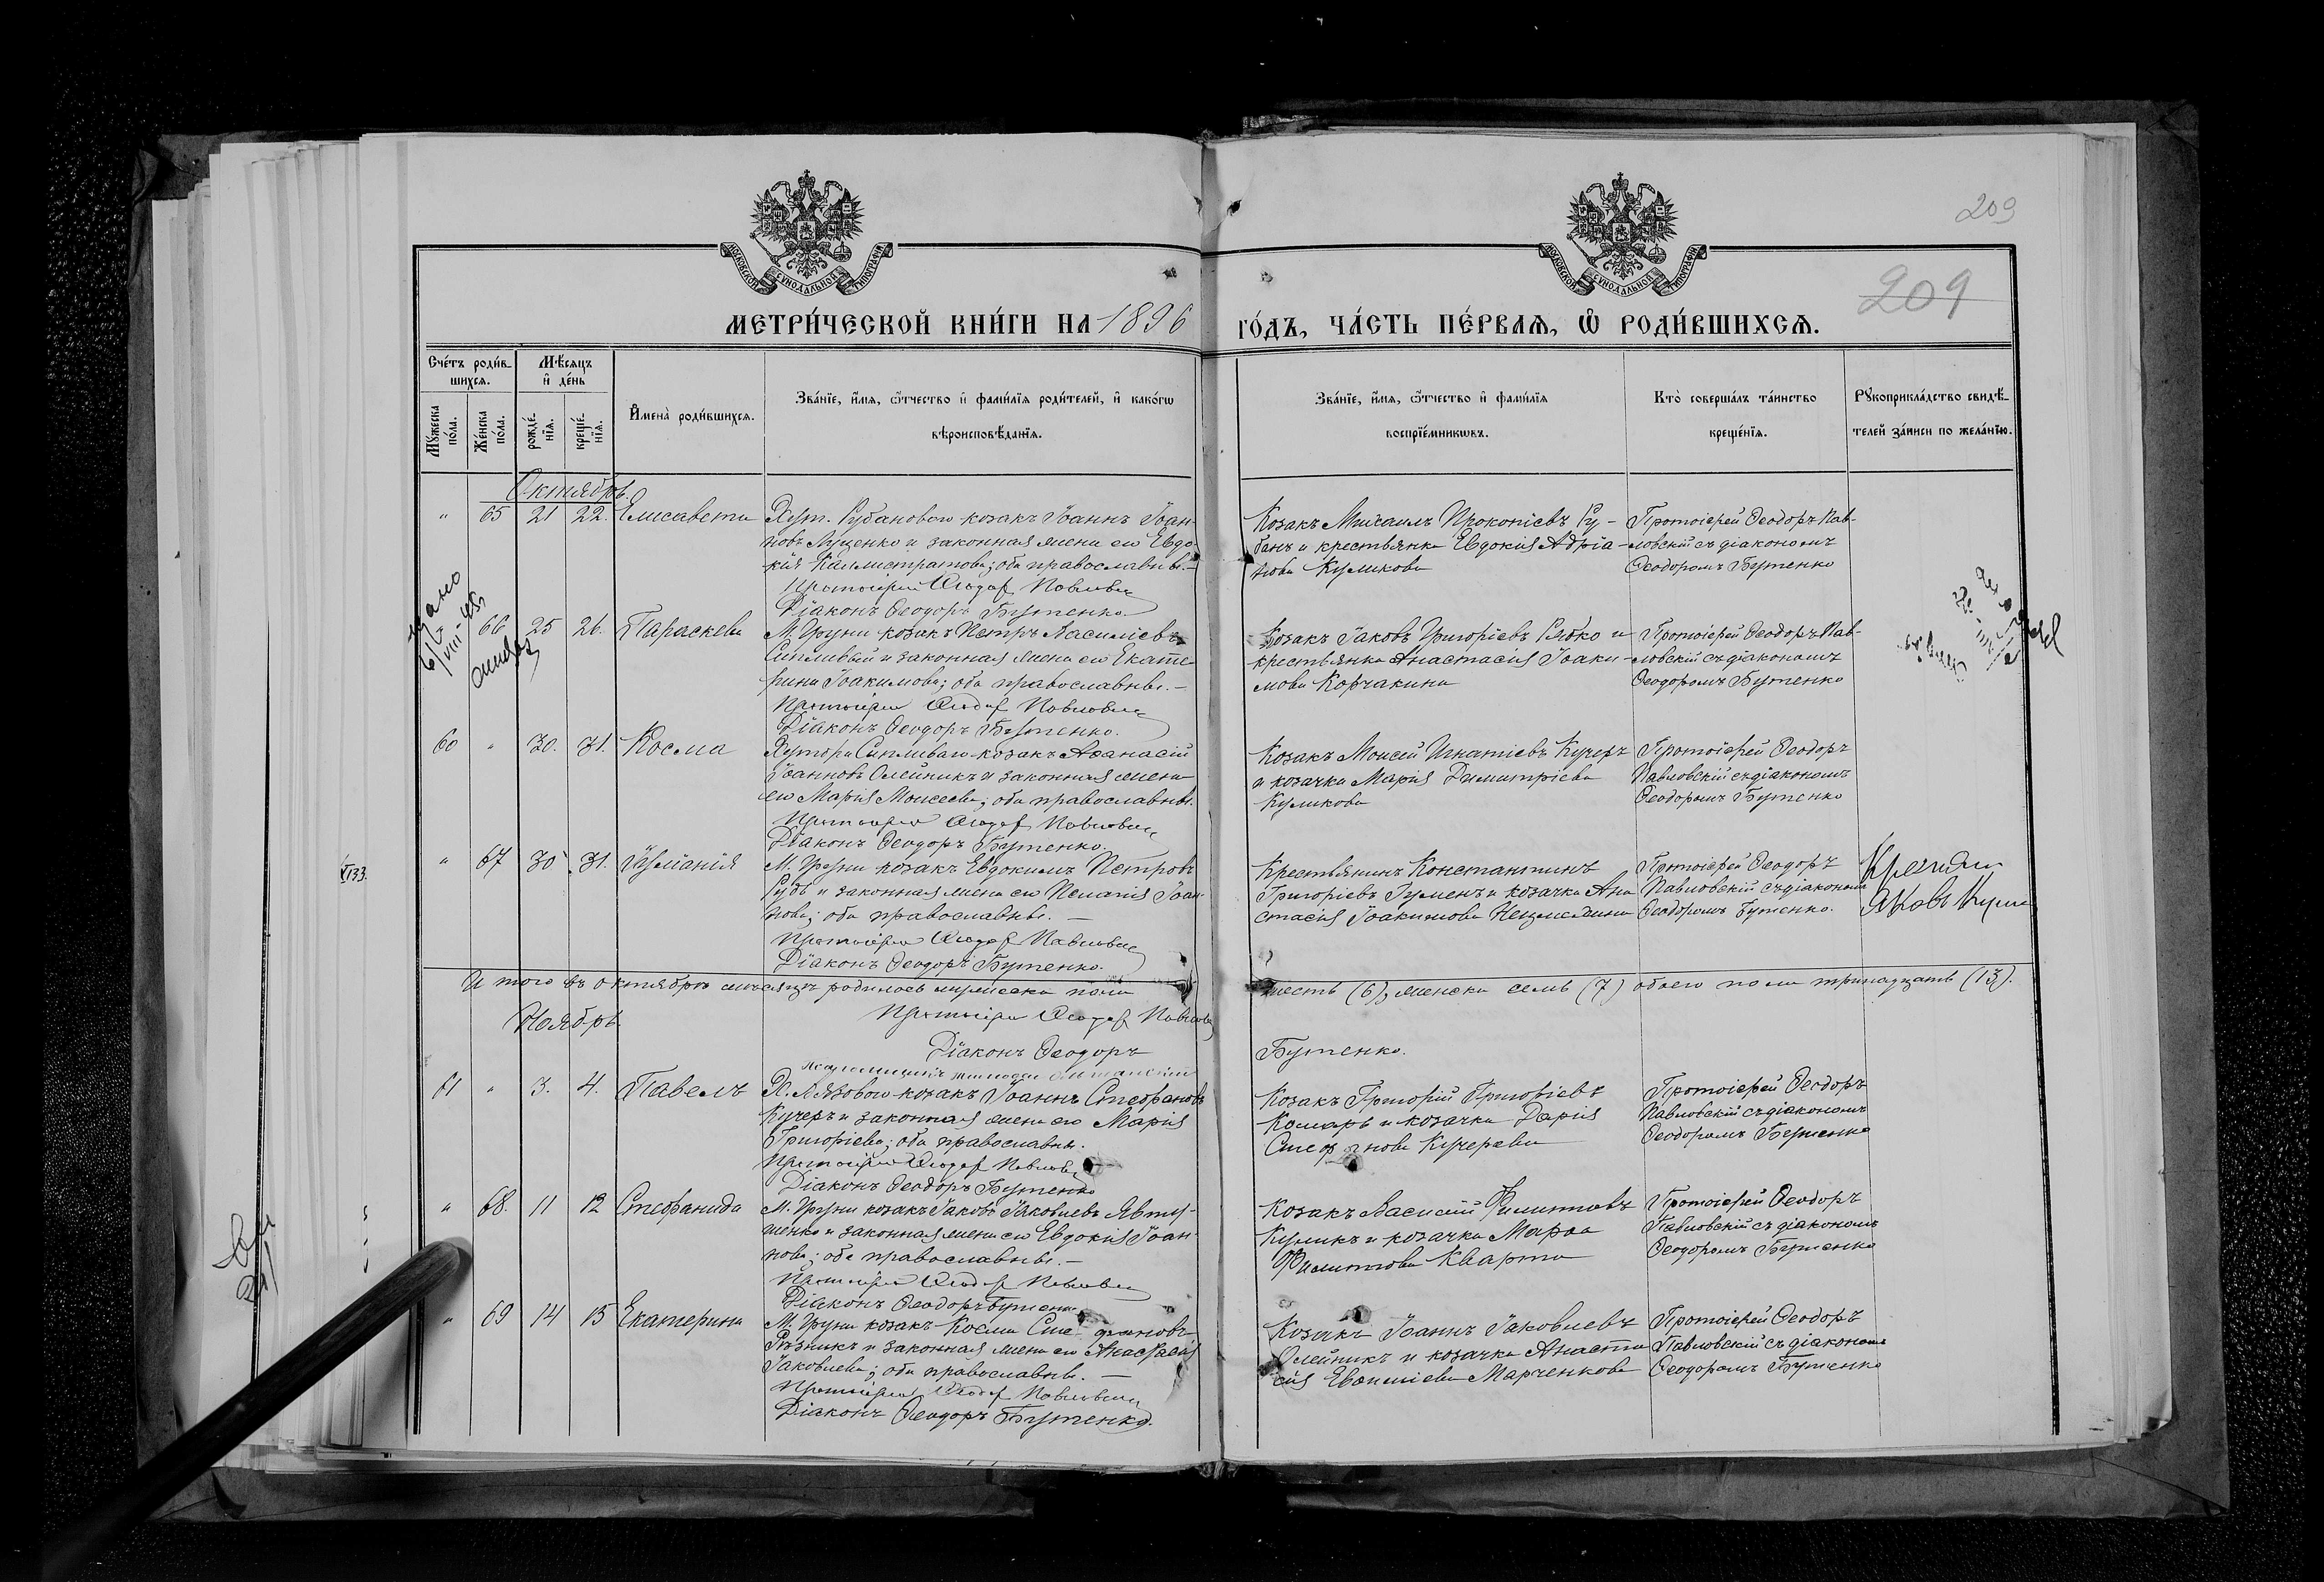 209
209
МОСКОВСКОЙ СУНОДАЛЬНОЙ ТИПОГРАФІИ
МОСКОВСКОЙ СУНОДАЛЬНОЙ ТИПОГРАФІИ
МЕТРИ́ЧЕСКОЙ КНИ́ГИ НА 1896
ГО́ДЪ, ЧА́СТЬ ПЕ́РВАЯ, Ѿ РОДИ́ВШИХСЯ.
Сче́тъ роди́в-
шихся.
Мꙋ́жеска по́ла.
Же́нска по́ла.
Мѣ́сяцъ
и҆ де́нь
рожде́нїя.
креще́нїя.
И҆мена̀ роди́вшихся.
Зва́нїе, и҆́мя, ѻ҆́тчество и҆ фами́лїя роди́телей, и҆ како́гѡ
вѣроисповѣ́данїя.
Зва́нїе, и҆́мя, ѻ҆́тчество и҆ фами́лїя
воспрїе́мникѡвъ.
Кто̀ соверша́лъ та́инство
креще́нїя.
Рꙋкоприкла́дство свидѣ́-
телей за́писи по жела́нїю.
Октябрь.
" 65 21 22. Елисавета
Хут. Рубановою козакъ Іоаннъ Іоан-
новъ Луценко и законная жена его Евдо-
кія Каллистратова; оба православные.–
Протоіерей Ѳеодоръ Павловскій
Діаконъ Ѳеодоръ Бутенко
Козакъ Михаилъ Прокопіевъ Ру-
банъ и крестьянка Евдокія Адріа-
нова Куликова
Протоіерей Ѳеодоръ Пав-
ловскій съ діакономъ
Ѳеодоромъ Бутенко
66 25 26. Параскева
М. Груни козакъ Петръ Василіевъ
Сипливый и законная жена его Екате-
рина Іоакимова; оба православные.–
Протоіерей Ѳеодоръ Павловскій
Діаконъ Ѳеодоръ Бутенко.
Козакъ Іаковъ Григоріевъ Рябко и
крестьянка Анастасія Іоаки-
мова Корчакина
Протоіерей Ѳеодоръ Пав-
ловскій съ діакономъ
Ѳеодоромъ Бутенко
60 " 30. 31. Косма
Хутора Сипливаго козакъ Аѳанасій
Іоанновъ Олейникъ и законная жена
его Марія Моисеева; оба православные.
Протоіерей Ѳеодоръ Павловскій
Діаконъ Ѳеодоръ Бутенко.
Козакъ Моисей Игнатіевъ Кучеръ
и козачка Марія Димитріева
Куликова
Протоіерей Ѳеодоръ
Павловскій съ діакономъ
Ѳеодоромъ Бутенко
" 67 30 31. Іуліанія
М. Груни козакъ Евдокимъ Петровъ
Рудь и законная жена его Пелагія Іоан-
нова; оба православные.–
Протоіерей Ѳеодоръ Павловскій
Діаконъ Ѳеодоръ Бутенко.
Крестьянинъ Константинъ
Григоріевъ Гуменъ и козачка Ана
стасія Іоакимова
Протоіерей Ѳеодоръ
Павловскій съ діакономъ
Ѳеодоромъ Бутенко.
Яковъ
И того въ октябрѣ мѣсяцѣ родилось мужеска пола
шесть (6), женска семь (7) обоего пола тринадцать (13).
Ноябрь.
Протоіерей Ѳеодоръ Павловскій
Діаконъ Ѳеодоръ
Бутенко.
61 " 3. 4. Павелъ
Х. Лязовою козакъ Іоаннъ Стефановъ
Кучеръ и законная жена его Марія
Григоріева; оба православны.
Протоіерей Ѳеодоръ Павловскій
Діаконъ Ѳеодоръ Бутенко
Козакъ Григорій Григоріевъ
Комаръ и козачка Дарія
Стефанова Кучерева
Протоіерей Ѳеодоръ
Павловскій съ діакономъ
Ѳеодоромъ Бутенко
" 68. 11 12 Стефанида
М. Груни козакъ Іаковъ Іаковлевъ Явту-
шенко и законная жена его Евдокія Іоан-
нова; оба православные.–
Протоіерей Ѳеодоръ Павловскій
Діаконъ Ѳеодоръ Бутенко
Козакъ Василій Филипповъ
Куликъ и козачка Марѳа
Филиппова Кварта
Протоіерей Ѳеодоръ
Павловскій съ діакономъ
Ѳеодоромъ Бутенко
" 69 14 15 Екатерина
М. Груни козакъ Косма Стефановъ
Рѣзникъ и законная жена его Анастасія
Іаковлева; оба православные.–
Протоіерей Ѳеодоръ Павловскій
Діаконъ Ѳеодоръ Бутенко.
Козакъ Іоаннъ Іаковлевъ
Олейникъ и козачка Анаста
сія Марченкова
Протоіерей Ѳеодоръ
Павловскій съ діакономъ
Ѳеодоромъ Бутенко